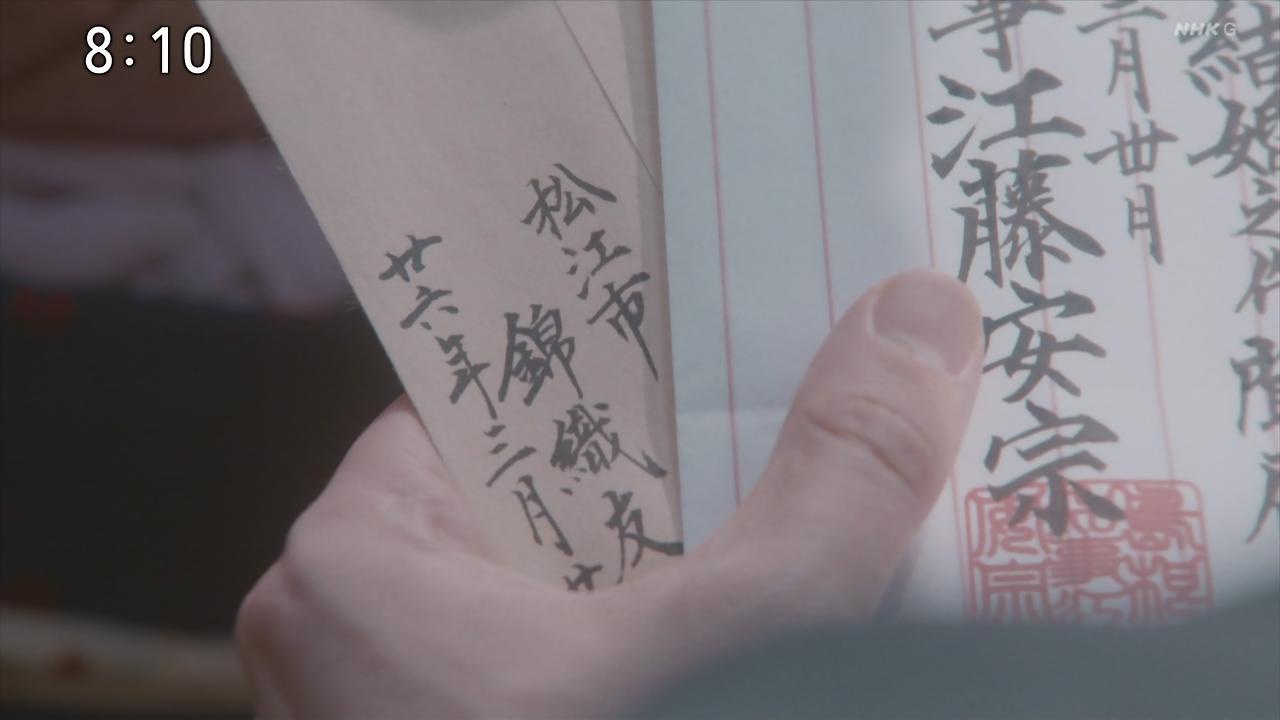 8:10
NHK G
結婚之件
三月廿月
江藤安宗
松江市
錦織友
廿六年三月廿